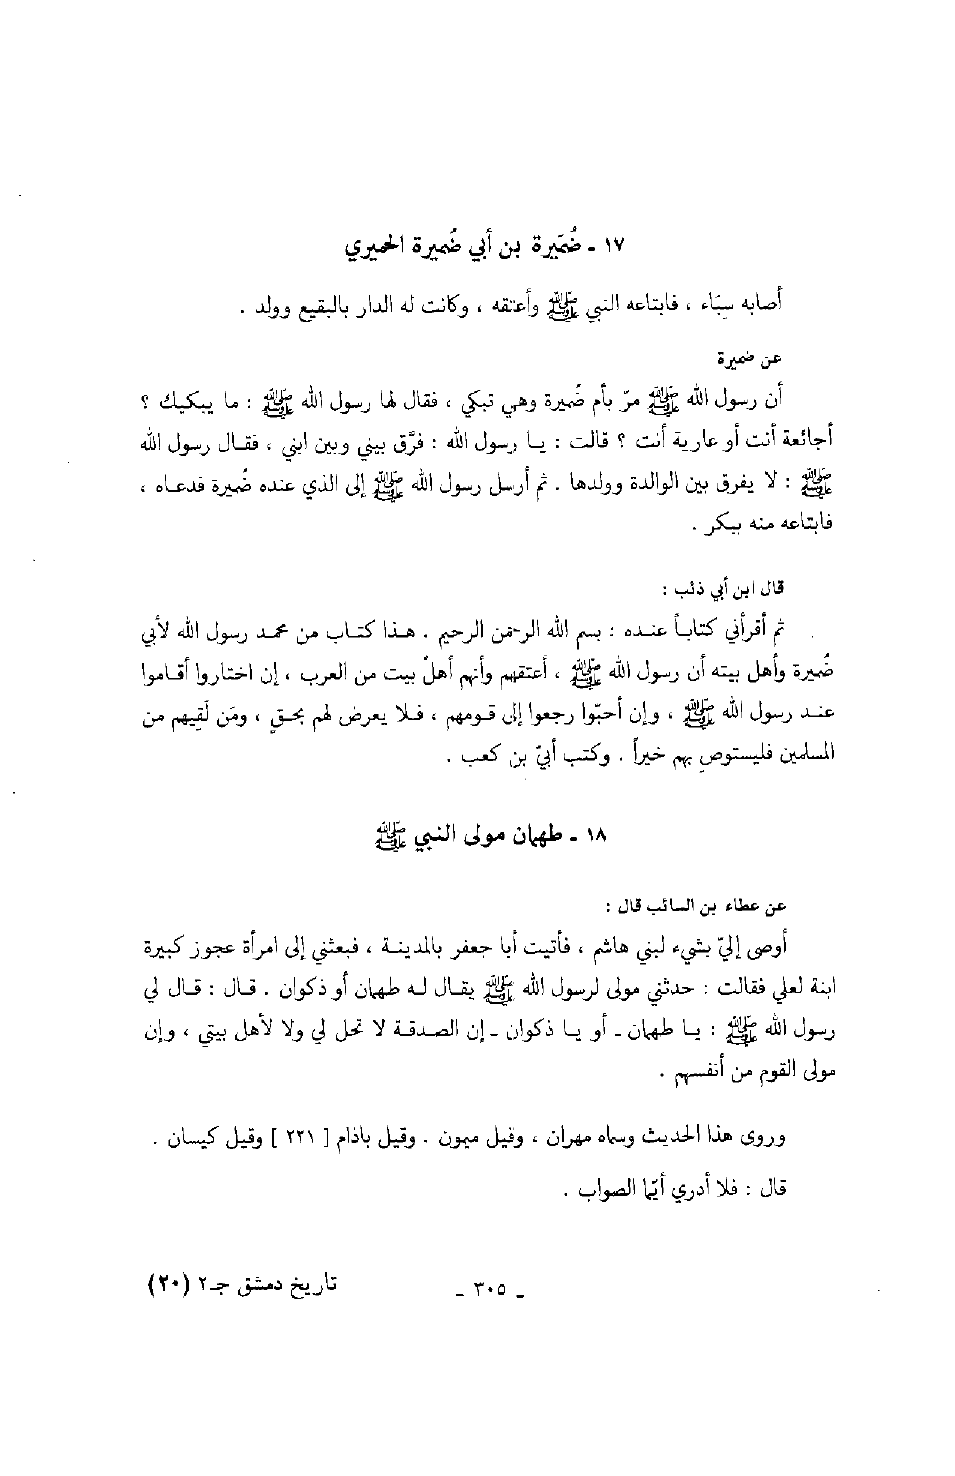 ١٧ - ضُمَيرة بن أبي ضُميرة الحميري
أصابه سِبَاء ، فابتاعه النبي ﷺ وأعتقه ، وكانت له الدار بالبقيع وولد .
عن ضميرة
أن رسول الله ﷺ مرّ بأم ضُميرة وهي تبكي ، فقال لها رسول الله ﷺ : ما يبكيك ؟
أجائعة أنت أو عارية أنت ؟ قالت : يا رسول الله : فرَّق بيني وبين ابني ، فقال رسول الله
ﷺ : لا يفرق بين الوالدة وولدها . ثم أرسل رسول الله ﷺ إلى الذي عنده ضُميرة فدعاه ،
فابتاعه منه ببكر .
قال ابن أبي ذئب :
ثم أقرأني كتاباً عنده : بسم الله الرحمن الرحيم . هذا كتاب من محمد رسول الله لأبي
ضُميرة وأهل بيته أن رسول الله ﷺ ، أعتقهم وأنهم أهلُ بيت من العرب ، إن اختاروا أقاموا
عند رسول الله ﷺ ، وإن أحبّوا رجعوا إلى قومهم ، فلا يعرض لهم بحقٍ ، ومَن لَقِيهم من
المسلمين فليستوصِ بهم خيراً . وكتب أبيّ بن كعب .
١٨ - طهمان مولى النبي ﷺ
عن عطاء بن السائب قال :
أوصى إليّ بشيء لبني هاشم ، فأتيت أبا جعفر بالمدينة ، فبعثني إلى امرأة عجوز كبيرة
ابنة لعلي فقالت : حدثني مولى لرسول الله ﷺ يقال له طهمان أو ذكوان . قال : قال لي
رسول الله ﷺ : يا طهمان - أو يا ذكوان - إن الصدقة لا تحل لي ولا لأهل بيتي ، وإن
مولى القوم من أنفسهم .
وروى هذا الحديث وسماه مهران ، وقيل ميمون . وقيل باذام [ ٢٢١ ] وقيل كيسان .
قال : فلا أدري أيّما الصواب .
- ٣٠٥ -
تاريخ دمشق جـ٢ (٢٠)